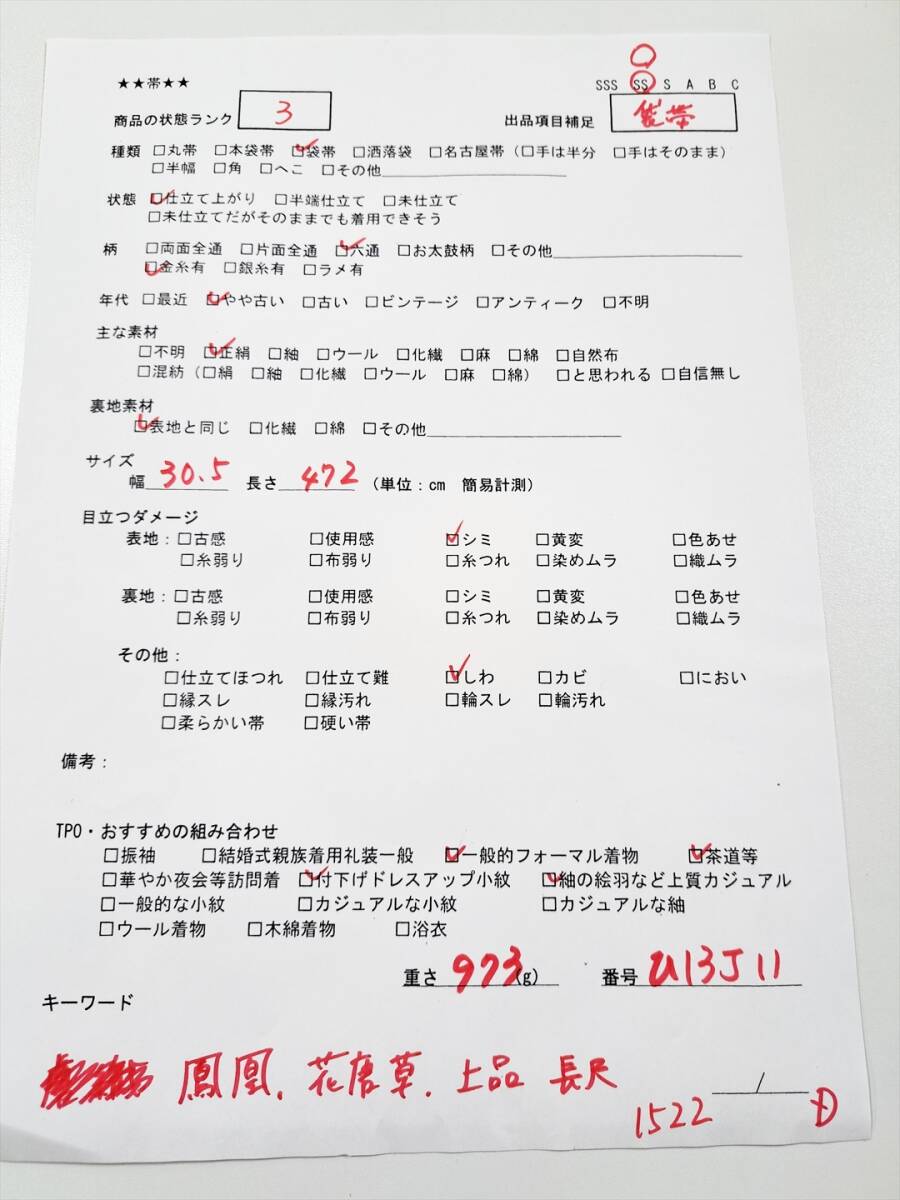 ★★帯★★
SSS SS S A B C
商品の状態ランク 3 出品項目補足 袋帯
種類 □丸帯 □本袋帯 ☑袋帯 □洒落袋 □名古屋帯(□手は半分 □手はそのまま)
□半幅 □角 □へこ □その他
状態 ☑仕立て上がり □半端仕立て □未仕立て
□未仕立てだがそのままでも着用できそう
柄 □両面全通 □片面全通 ☑六通 □お太鼓柄 □その他
☑金糸有 □銀糸有 □ラメ有
年代 □最近 ☑やや古い □古い □ビンテージ □アンティーク □不明
主な素材
□不明 ☑正絹 □紬 □ウール □化繊 □麻 □綿 □自然布
□混紡(□絹 □紬 □化繊 □ウール □麻 □綿) □と思われる □自信無し
裏地素材
☑表地と同じ □化繊 □綿 □その他
サイズ
幅 30.5 長さ 472 (単位:cm 簡易計測)
目立つダメージ
表地:□古感 □使用感 ☑シミ □黄変 □色あせ
□糸弱り □布弱り □糸つれ □染めムラ □織ムラ
裏地:□古感 □使用感 □シミ □黄変 □色あせ
□糸弱り □布弱り □糸つれ □染めムラ □織ムラ
その他:
□仕立てほつれ □仕立て難 ☑しわ □カビ □におい
□縁スレ □縁汚れ □輪スレ □輪汚れ
□柔らかい帯 □硬い帯
備考:
TPO・おすすめの組み合わせ
□振袖 □結婚式親族着用礼装一般 ☑一般的フォーマル着物 ☑茶道等
□華やか夜会等訪問着 ☑付下げドレスアップ小紋 ☑紬の絵羽など上質カジュアル
□一般的な小紋 □カジュアルな小紋 □カジュアルな紬
□ウール着物 □木綿着物 □浴衣
重さ 973(g) 番号 U13J11
キーワード
鳳凰. 花唐草. 上品 長尺
1522 /